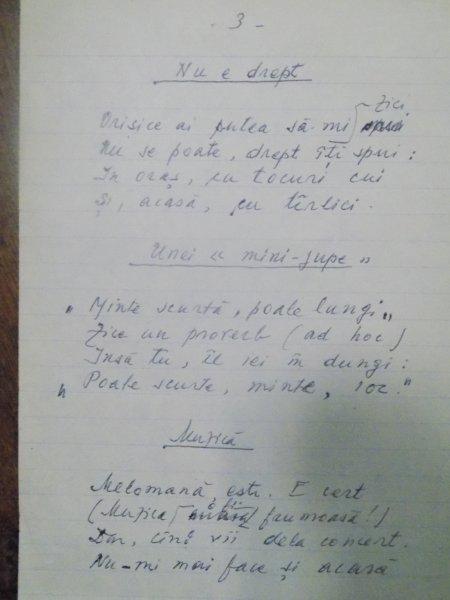 - 3 -
Nu e drept
Orișice ai putea să-mi zici
Nu se poate, drept îți spui :
În oraș, cu tocuri cui
Și, acasă, cu tîrlici.
Unei „ mini-jupe "
„ Minte scurtă, poale lungi "
Zice un proverb (ad hoc)
Însă tu, îl iei în dungi :
„ Poale scurte, minte, ioc."
Muzică
Melomană, este. E cert
(Muzica frumoasă!)
Dar, cînd vii dela concert.
Nu-mi mai face și acasă